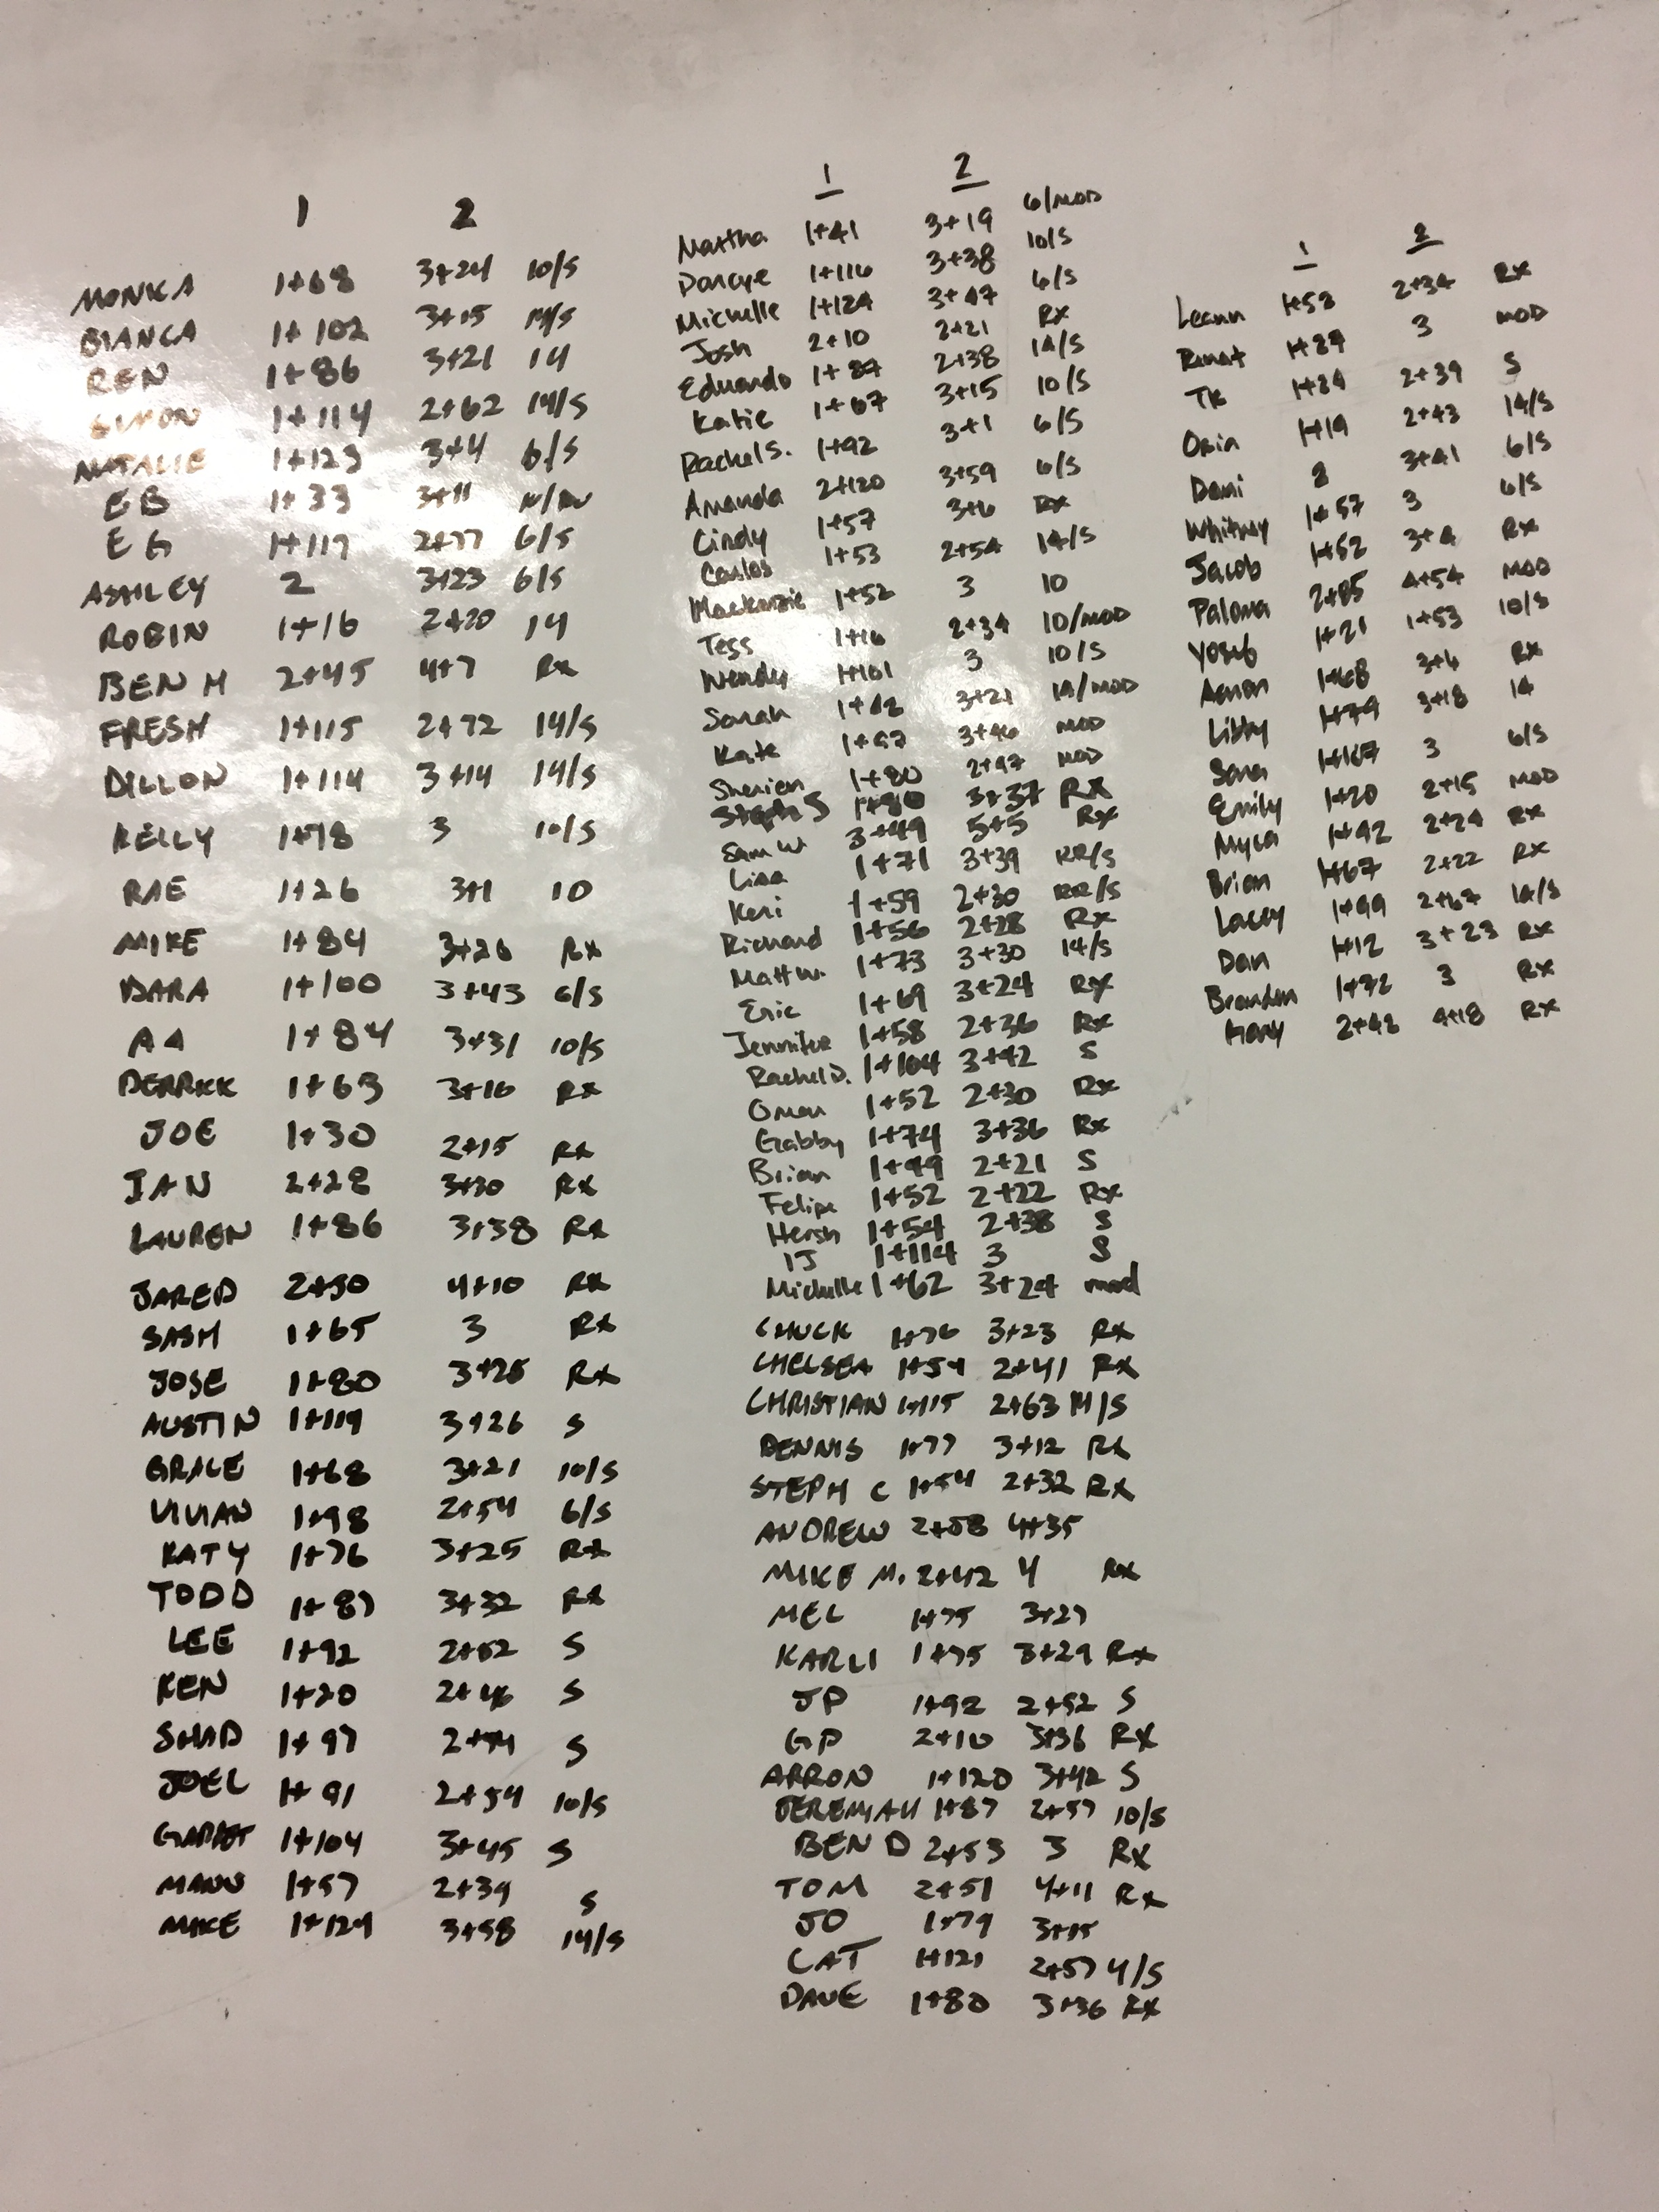 1 2
MONICA 1+68 3+24 10/S
BIANCA 1+102 3+15 14/S
REN 1+86 3+21 14
SIMON 1+114 2+62 14/S
NATALIE 1+123 3+4 6/S
EB 1+33 3+11
EG 1+117 2+77 6/S
ASHLEY 2 3+23 6/S
ROBIN 1+16 2+20 14
BEN H 2+45 4+7 Rx
FRESH 1+115 2+72 14/S
DILLON 1+114 3+14 14/S
KELLY 1+78 3 10/S
RAE 1+26 3+1 10
MIKE 1+84 3+26 Rx
DARA 1+100 3+43 6/S
AA 1+84 3+31 10/S
DERRICK 1+63 3+16 Rx
JOE 1+30 2+15 Rx
IAN 2+28 3+30 Rx
LAUREN 1+86 3+38 Rx
JARED 2+50 4+10 Rx
SASH 1+65 3 Rx
JOSE 1+80 3+25 Rx
AUSTIN 1+119 3+26 S
GRACE 1+68 3+21 10/S
VIVIAN 1+98 2+54 6/S
KATY 1+76 3+25 Rx
TODD 1+87 3+32 Rx
LEE 1+92 2+52 S
KEN 1+20 2+46 S
SHAD 1+97 S
JOEL 1+91 2+54 10/S
GARRET 1+104 3+45 S
MANU 1+57 2+39 S
MIKE 1+124 3+58 14/S
1 2
Martha 1+41 3+19 6/MOD
Dorcye 1+116 3+38 10/S
Michelle 1+124 3+47 6/S
Josh 2+10 2+21 Rx
Eduardo 1+87 2+38 14/S
Katie 1+67 3+15 10/S
Rachel S. 1+92 3+1 6/S
Amanda 2+120 3+59 6/S
Cindy 1+57 3+6 Rx
Carlos 1+53 2+54 14/S
Mackenzie 1+52 3 10
Tess 1+16 2+34 10/MOD
Wendy 1+101 3 10/S
Sarah 1+42 3+21 14/MOD
Kate 1+97 3+46 MOD
Sherien 1+80 2+97 MOD
Steph S 1+80 3+37 Rx
Sam W. 3+49 5+5 Rx
Lisa 1+71 3+39 RR/S
Keri 1+59 2+30 RR/S
Richard 1+56 2+28 Rx
Matt W. 1+73 3+30 14/S
Eric 1+69 3+24 Rx
Jennifer 1+58 2+36 Rx
Rachel D. 1+104 3+42 S
Omar 1+52 2+30 Rx
Gabby 1+74 3+36 Rx
Brian 1+99 2+21 S
Felipe 1+52 2+22 Rx
Hersh 1+54 2+38 S
IJ 1+114 3 S
Michelle 1+62 3+24 mod
CHUCK 1+76 3+23 Rx
CHELSEA 1+54 2+41 Rx
CHRISTIAN 1+115 2+63 14/S
DENNIS 1+77 3+12 Rx
STEPH C 1+54 2+32 Rx
ANDREW 2+58 4+35
MIKE M. 2+42 4 Rx
MEL 1+75 3+27
KARLI 1+75 3+29 Rx
JP 1+92 2+52 S
GP 2+10 3+36 Rx
ARRON 1+120 3+42 S
JEREMIAH 1+87 2+57 10/S
BEN D 2+53 3 Rx
TOM 2+51 4+11 Rx
JO 1+79 3+15
CAT 1+121 2+57 4/S
DAVE 1+80 3+36 Rx
1 2
Leann 1+52 2+34 Rx
Renat 1+27 3 MOD
TK 1+24 2+39 S
Orin 1+19 2+43 14/S
Dami 2 3+41 6/S
Whitney 1+57 3 6/S
Jacob 1+52 3+4 Rx
Paloma 2+85 4+54 MOD
Yoseb 1+21 1+53 10/S
Aaron 1+68 3+6 Rx
Libby 1+79 3+18 14
Sona 1+107 3 6/S
Emily 1+20 2+15 MOD
Myca 1+42 2+24 Rx
Brian 1+67 2+22 Rx
Lacey 1+99 2+67 14/S
Dan 1+12 3+23 Rx
Brandon 1+72 3 Rx
2+42 4+18 Rx